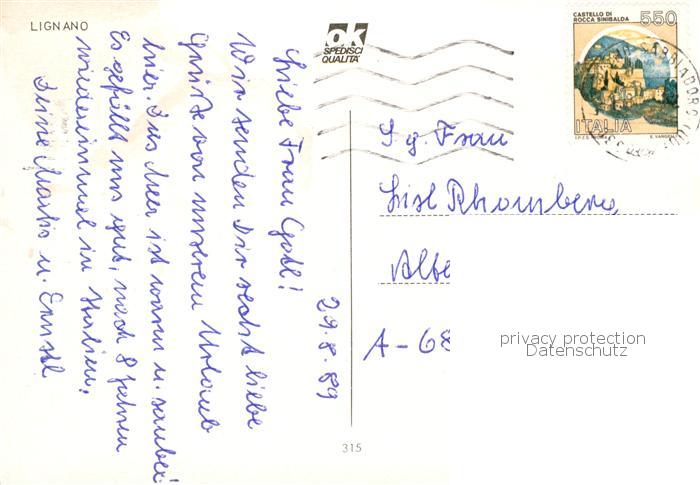 LIGNANO
ok
SPEDISCI
QUALITA'
CASTELLO DI
ROCCA SINIBALDA
550
ITALIA
29.8.89
Liebe Frau Gotl!
Wir senden Dir recht liebe
Grüße von unserem Urlaub
hier. Das Meer ist warm u. sauber.
Es gefällt uns gut, nach 8 Jahren
wiedereinmal in Italien.
Deine u.
S. g. Frau
Lisl Rhomberg
A-68
privacy protection
Datenschutz
315